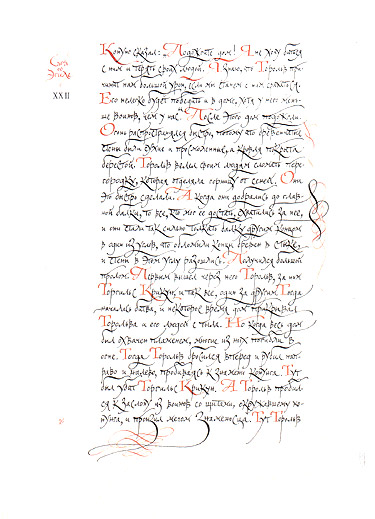 Сага
об
Эгиле
XXII
Конунг сказал: — Подожгите дом! Я не хочу биться
с ним и терять своих людей. Я знаю, что Торольв при-
чинит нам большой урон, если мы станем с ним сражаться.
Его нелегко будет победить и в доме, хотя у него мень-
ше воинов, чем у нас. После этого дом подожгли.
Огонь распространялся быстро, потому что бревенчатые
стены были сухие и просмоленные, а кровля покрыта
берестой. Торольв велел своим людям сломать пере-
городку, которая отделяла горницу от сеней. Они
это быстро сделали. А когда они добрались до глав-
ной балки, то все, кто мог ее достать, схватились за нее,
и они стали так сильно толкать балку другим концом
в один из углов, что обломили концы бревен в стыке,
и стены в этом углу разошлись. Получился большой
пролом. Первым вышел через него Торольв, за ним
Торгильс Крикун, и так все, один за другим. Тогда
началась битва, и некоторое время дом прикрывал
Торольва и его людей с тыла. Но когда весь дом
был охвачен пламенем, многие из них погибли в
огне. Тогда Торольв бросился вперед и рубил нап-
раво и налево, пробиваясь к знамени конунга. Тут
был убит Торгильс Крикун. А Торольв пробил-
ся к заслону из воинов со щитами, окружавшему ко-
нунга, и пронзил мечом знаменосца. Тут Торольв